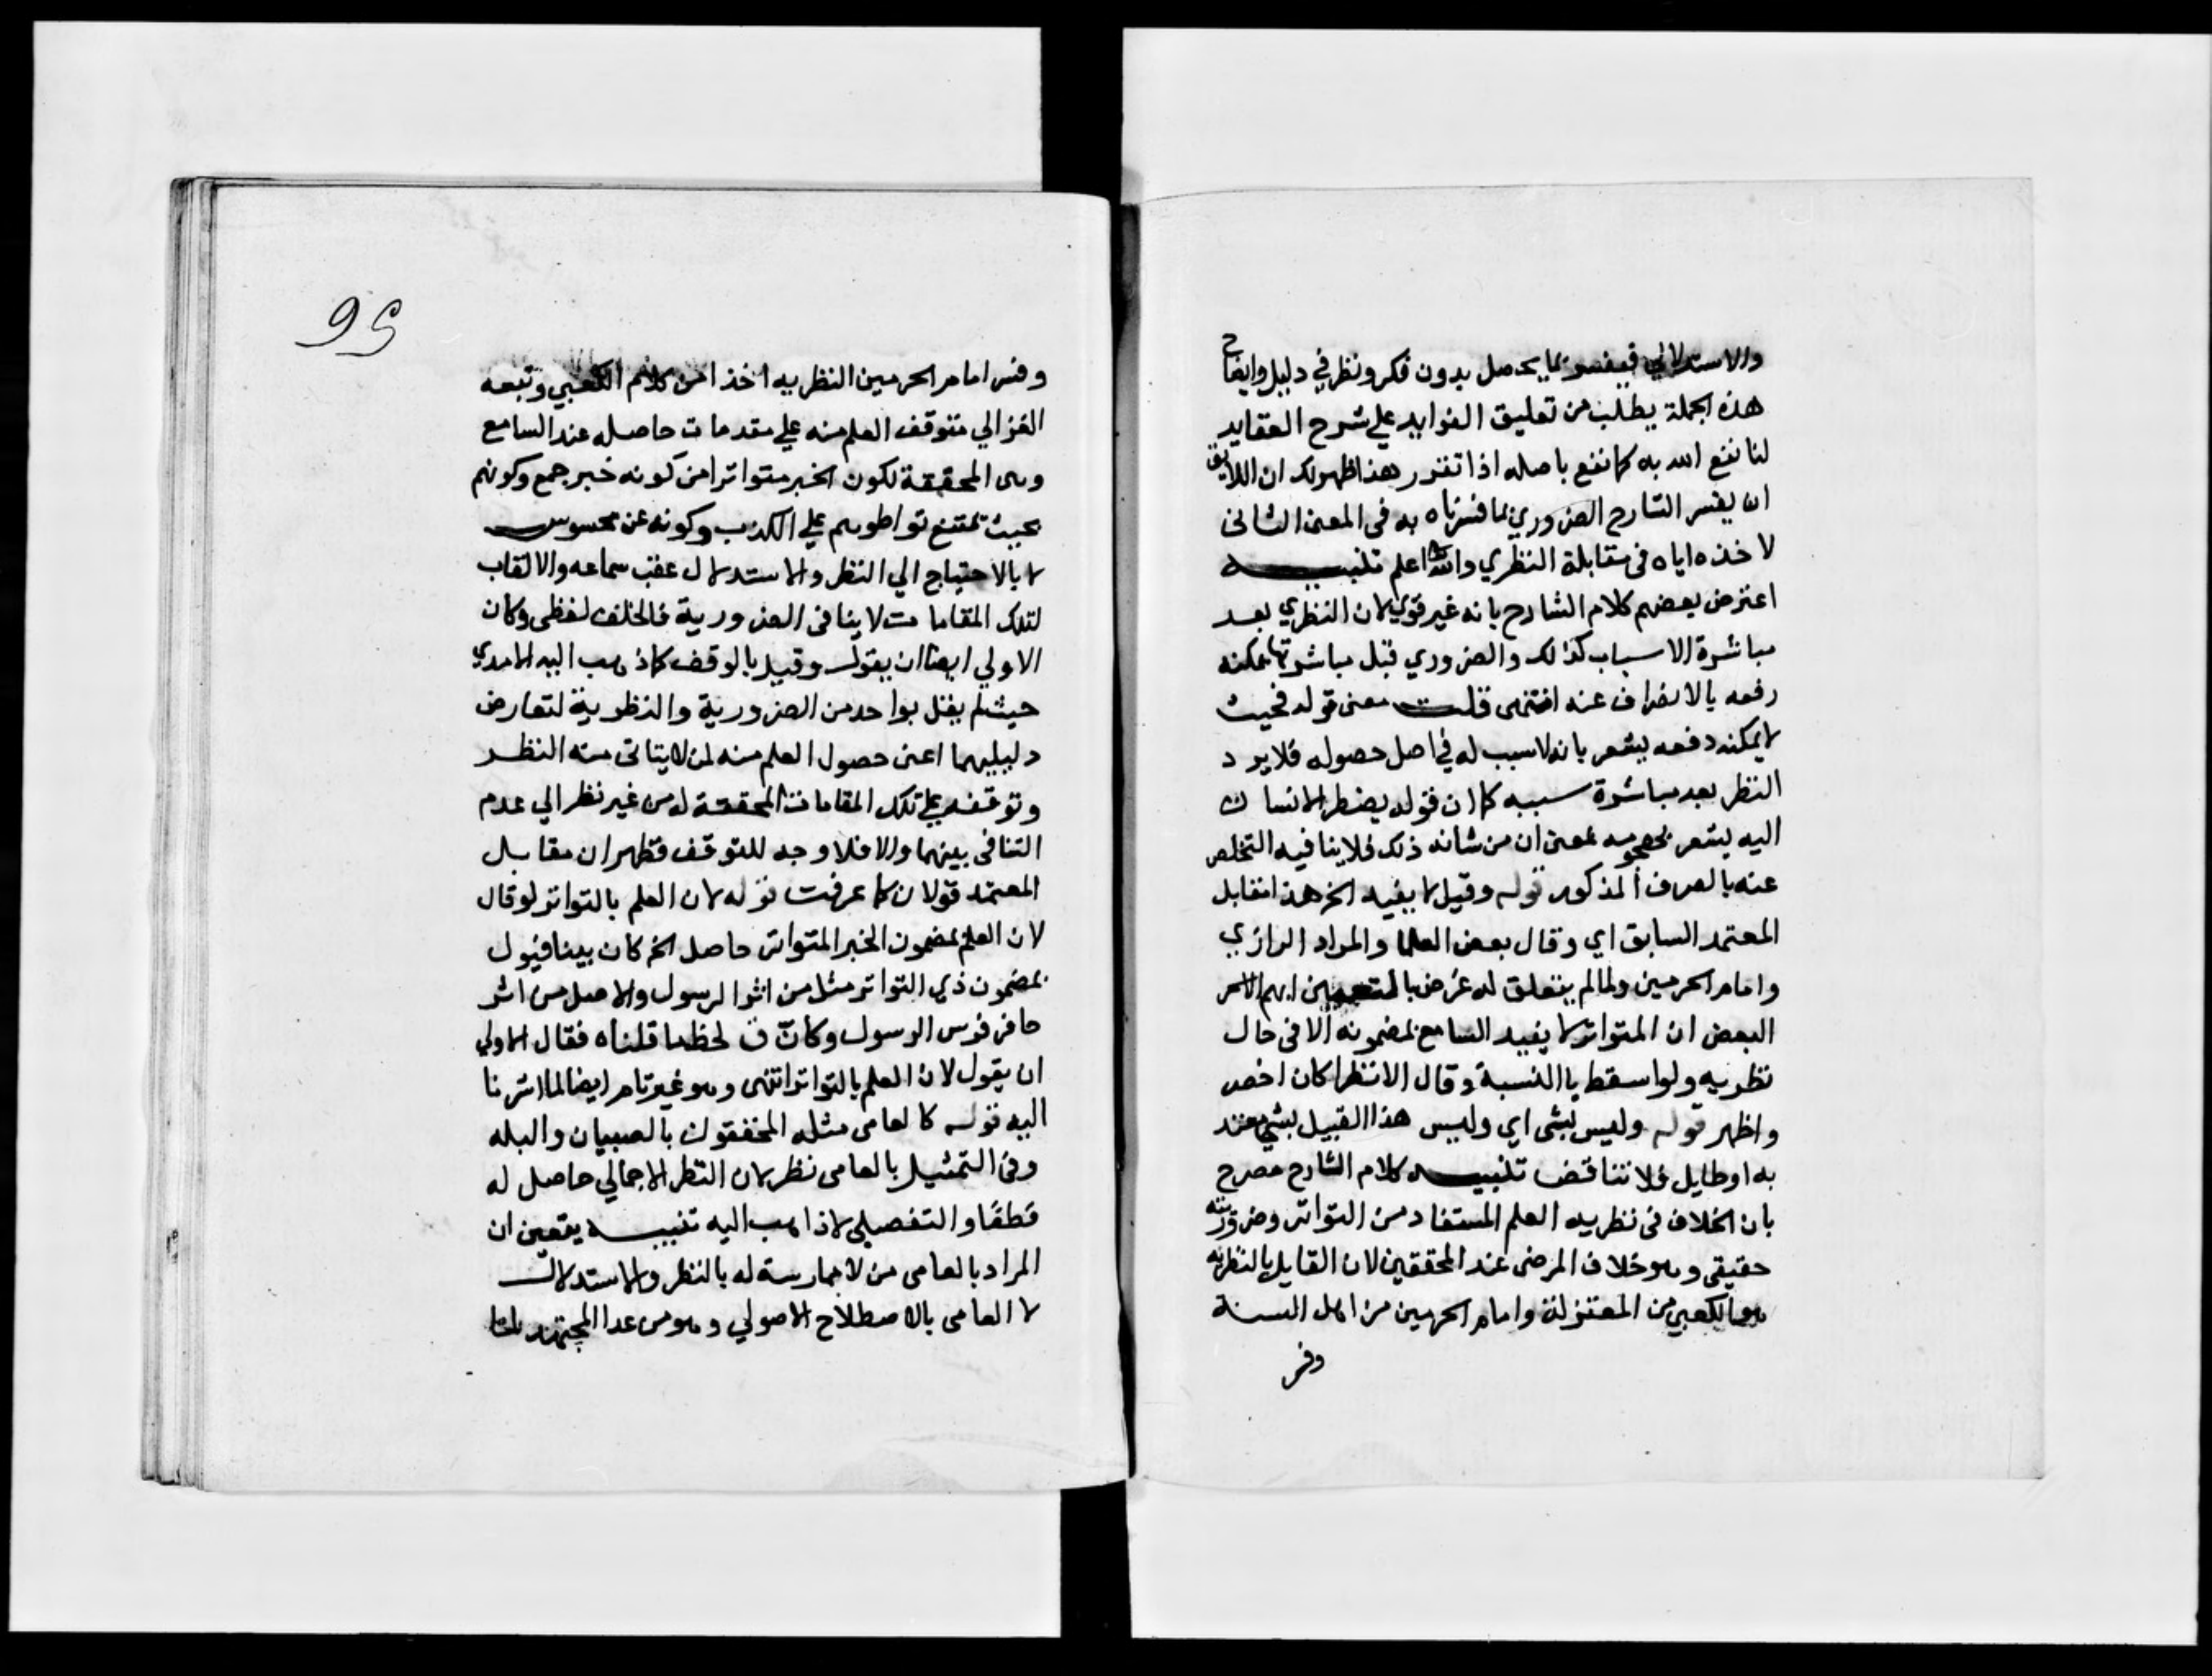 والاستدلالي فيفسر بما يحصل بدون فكر ونظر في دليل وايضاح
هذه الجملة يطلب من تعليق الفوايد علي شرح العقايد
لنا نفع الله به كما نفع باصله اذا تقرر هذا ظهر لك ان اللايق
ان يفسر الشارح الضروري بما فسرناه به في المعنى الثاني
لاخذه اياه في مقابلة النظري والله اعلم تنبيه
اعترض بعضهم كلام الشارح بانه غير قوي لان النظري بعد
مباشرة الاسباب كذلك والضروري قبل مباشرتها يمكنه
رفعه بالانصراف عنه انتهى قلت معنى قوله فحيث
لا يمكنه دفعه يشعر بانه لا سبب له في اصل حصوله فلا يرد
النظر بعد مباشرة سببه كما ان قوله يضطر الانسان
اليه يشعر بمعنى ان من شانه ذلك فلا ينافيه التخلص
عنه بالصرف المذكور قوله وقيل لا يفيد الخ هذا مقابل
المعتمد السابق اي وقال بعض العلما والمراد الرازي
وامام الحرمين ولما لم يتعلق له غرض بالتعيين ابهم الامر
البعض ان المتواتر لا يفيد السامع بمضمونه الا في حال
نظريه ولو اسقط يا النسبة وقال الا نظرا كان اخصر
واظهر قوله وليس بشي اي وليس هذا القبيل بشي يعتد
به او طايل فلا تتناقض تنبيه كلام الشارح مصرح
بان الخلاف في نظريه العلم المستفاد من التواتر وضروريته
حقيقي وهو خلاف المرضي عند المحققين لان القايل بالنظريه
هو الكعبي من المعتزلة وامام الحرمين من اهل السنة
وفسر
95
وفسر امام الحرمين النظريه اخذا من كلام الكعبي وتبعه
الغزالي متوقف العلم منه علي مقدمات حاصله عند السامع
وهي المحققة لكون الخبر متواترا من كونه خبر جمع وكونهم
بحيث يمتنع تواطوهم علي الكذب وكونه عن محسوس
لا بالاحتياج الي النظر والاستدلال عقب سماعه والالتفات
لتلك المقامات لا ينافي الضرورية فالخلف لفظي وكان
الاولي ايضا ان يقول وقيل بالوقف كما ذهب اليه الامدي
حيث لم يقل بواحد من الضرورية والنظرية لتعارض
دليليهما اعني حصول العلم منه لمن لا يتاتى منه النظر
وتوقفه علي تلك المقامات المحققة له من غير نظر الي عدم
التنافي بينهما والا فلا وجه للتوقف فظهر ان مقابل
المعتمد قولان كما عرفت قوله لان العلم بالتواتر لو قال
لان العلم بمضمون الخبر المتواتر حاصل الخ كان بينا فيول
بمضمون ذي التواتر مثل من اثر الرسول والاصل من اثر
حافر فرس الرسول وكان ق لحظ ما قلناه فقال الاولي
ان يقول لان العلم بالتواتر انتهى وهو غير تام ايضا لما اشرنا
اليه قوله كالعامي مثله المحققون بالصبيان والبله
وفي التمثيل بالعامي نظر لان النظر الاجمالي حاصل له
قطعا والتفصيلي لا ذاهب اليه تنبيه يتعين ان
المراد بالعامي من لا ممارسة له بالنظر والاستدلال
لا العامي بالاصطلاح الاصولي وهو من عدا المجتهد